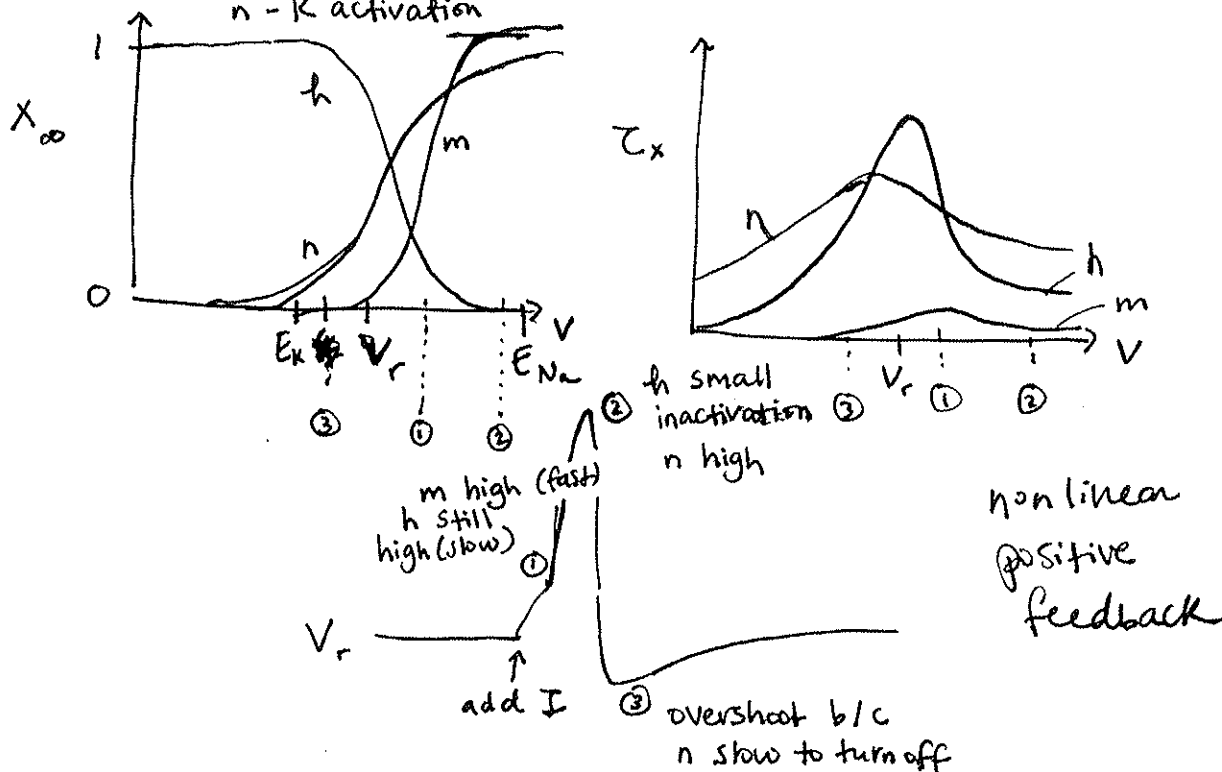 n - K activation
1
X∞
h
m
n
0
E_K
V_r
V
E_Na
③
①
②
τ_x
n
h
m
V_r
V
③
①
②
② h small
inactivation
n high
m high (fast)
h still
high (slow)
①
V_r
add I
③ overshoot b/c
n slow to turn off
non linear
positive
feedback